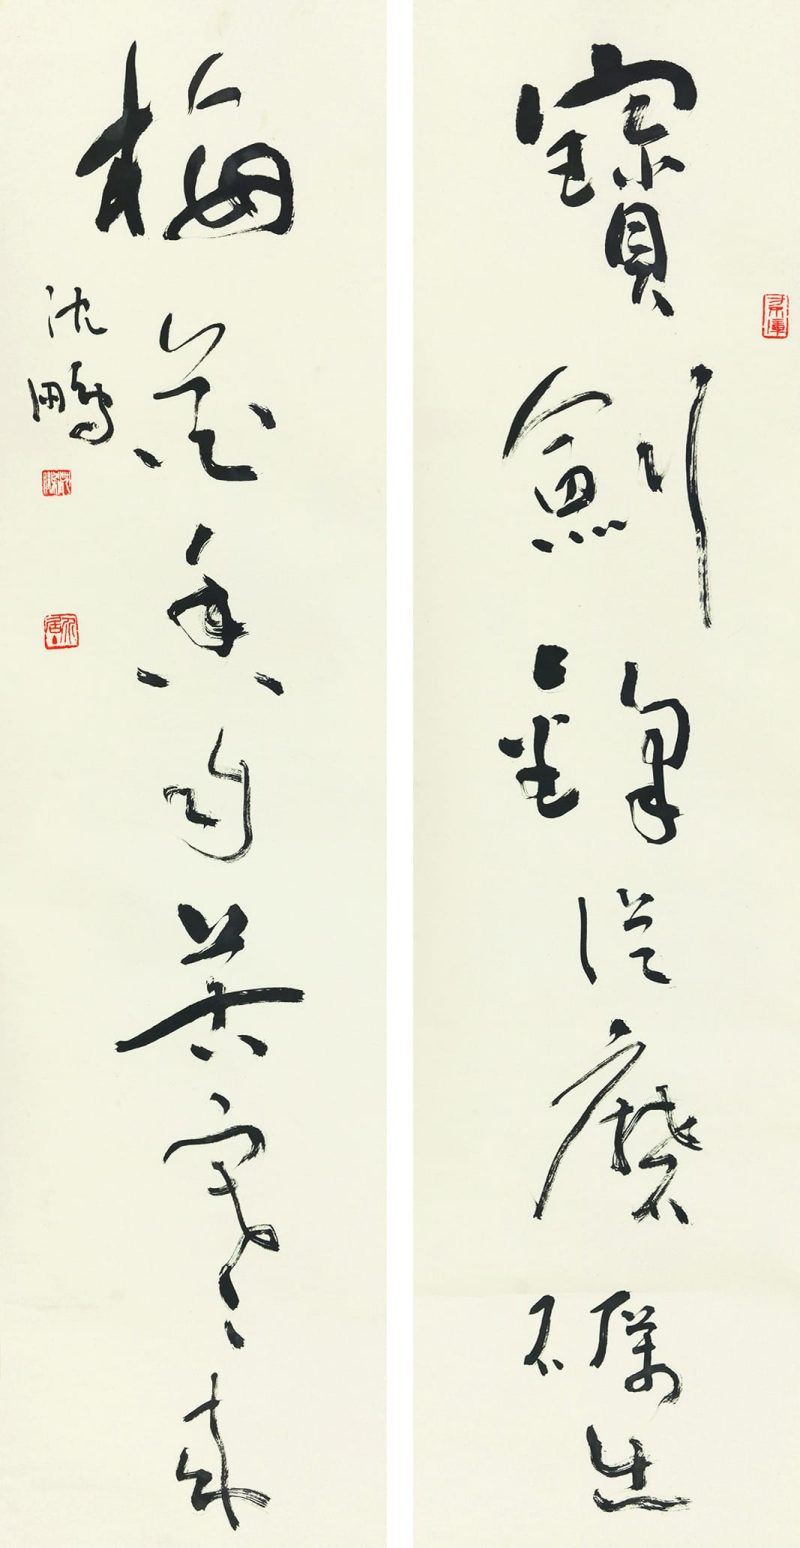 寶劍鋒從磨礪出
梅花香自苦寒來
沈鵬